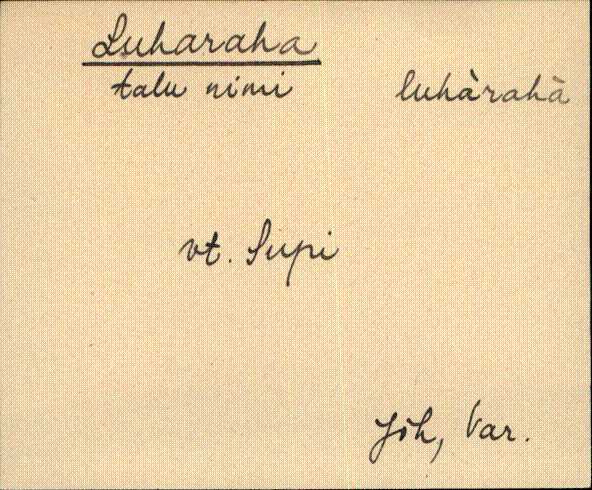 Luharaha
talu nimi luhàrahà
vt. Supi
Jõh, Var.